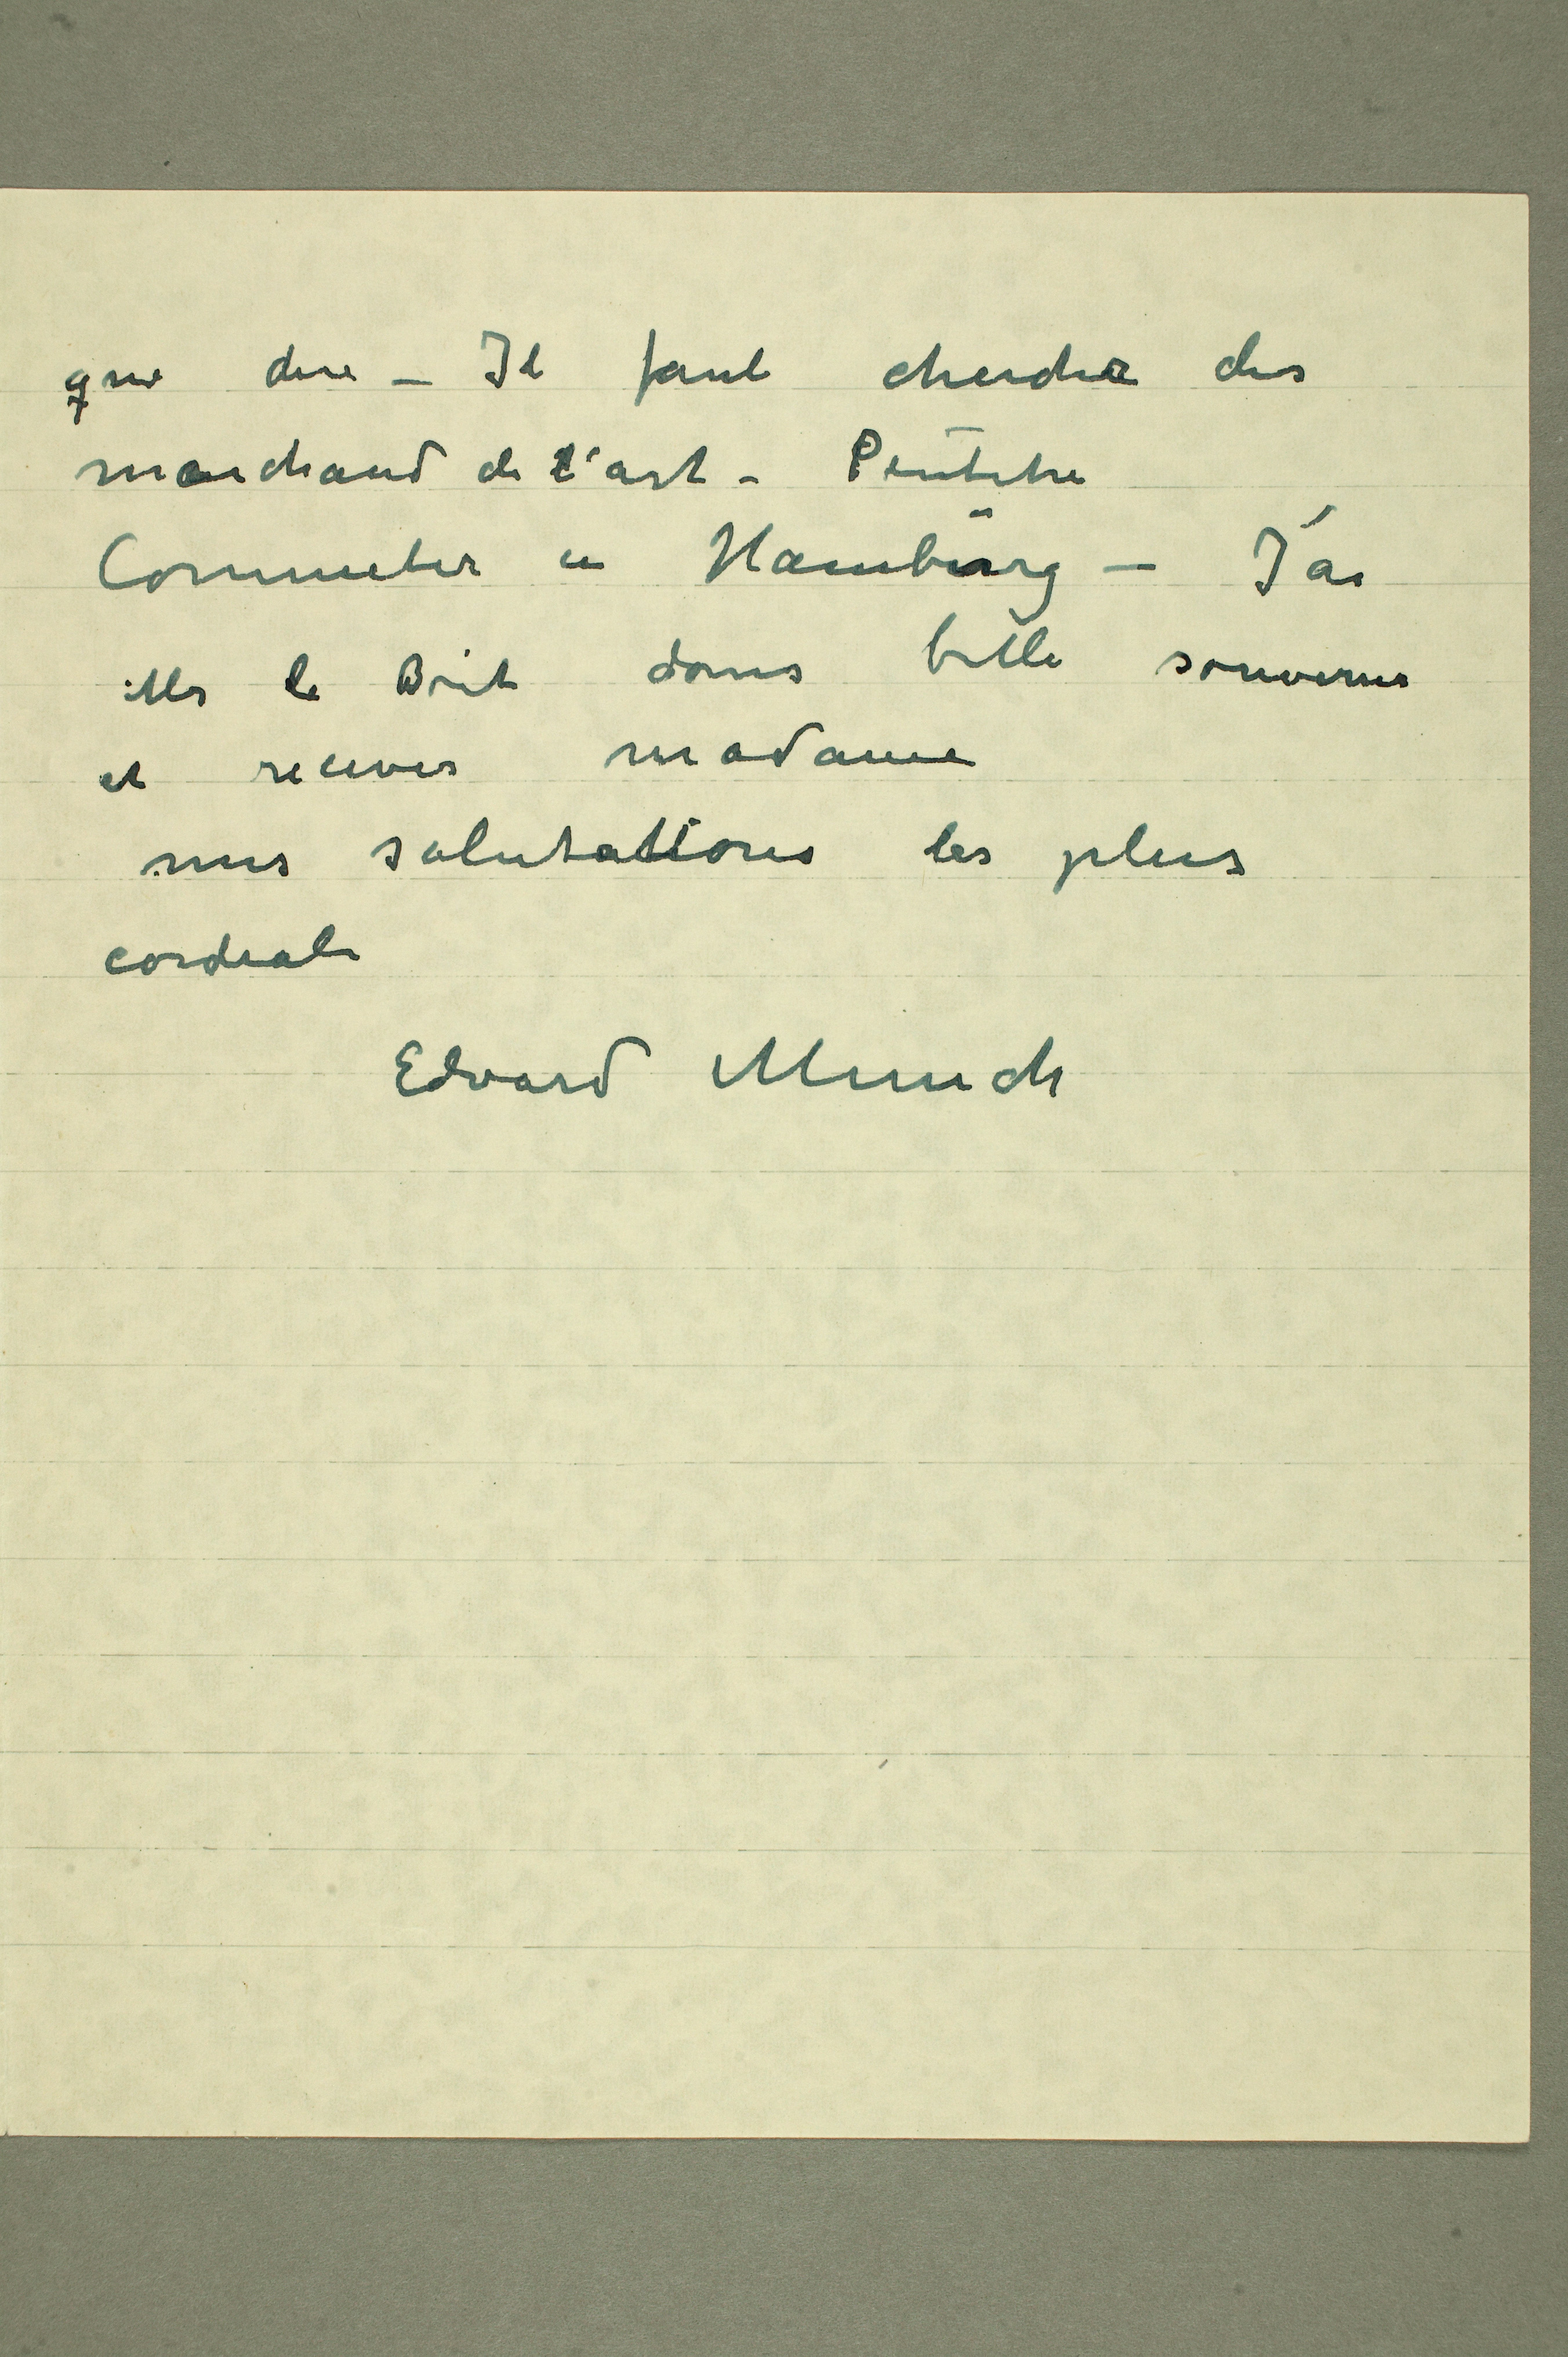 que dire – Il faut chercher des
marchand de l'art – Peutetre
Commeter en Hambürg – J'ai
Mr le Doit dans belle souvenir
et recever madame
mes salutations les plus
cordeale
Edvard Munch